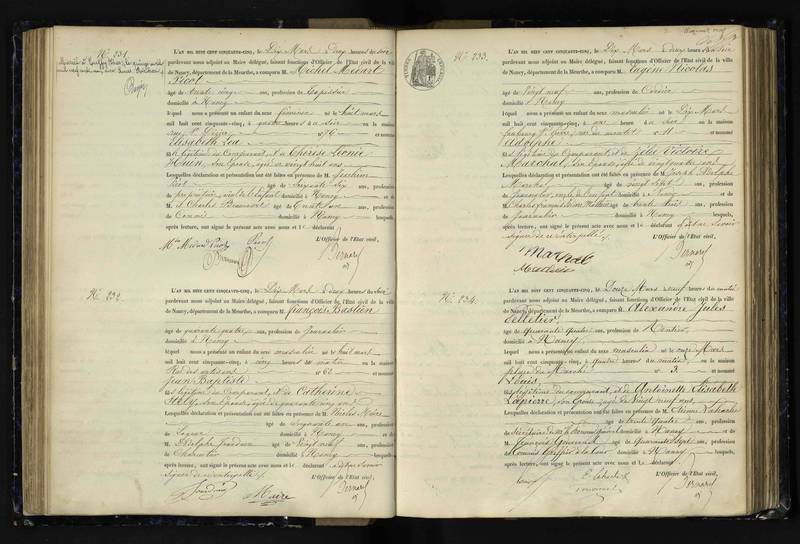 N°. 231
L'AN MIL HUIT CENT CINQUANTE-CINQ, le Dix Mars Deux heures du soir
pardevant nous adjoint au Maire délégué, faisant fonctions d'Officier de l'Etat civil de la ville
de Nancy, département de la Meurthe, a comparu M. Michel Médart
Picot
âgé de trente cinq ans, profession de Tapissier
domicilié à Nancy
lequel nous a présenté un enfant du sexe féminin né le huit mars
mil huit cent cinquante-cinq, à quatre heures du soir en la maison
rue St. Dizier N° 76 et nommé
Elisabeth Léa
fille légitime du Comparant, et de Thérèse Léonie
Huin, son épouse, âgée de vingt huit ans
Lesquelles déclaration et présentation ont été faites en présence de M. Joachim
Picot âgé de soixante six ans, profession
de propriétaire domicilié à Nancy et
de M. J. Charles Beauvoir âgé de trente six ans, profession
de Commis domicilié à Nancy lesquels,
après lecture, ont signé le présent acte avec nous et le déclarant
L'Officier de l'Etat civil,
Picot
Bernard
N°. 232
L'AN MIL HUIT CENT CINQUANTE-CINQ, le Dix Mars Deux heures du soir
pardevant nous adjoint au Maire délégué, faisant fonctions d'Officier de l'Etat civil de la ville
de Nancy, département de la Meurthe, a comparu M. François Bastien
âgé de quarante quatre ans, profession de Journalier
domicilié à Nancy
lequel nous a présenté un enfant du sexe masculin né le huit mars
mil huit cent cinquante-cinq, à cinq heures du matin en la maison
Rue des artisans N° 62 et nommé
Jean Baptiste
fils légitime du Comparant, et de Catherine
son épouse, âgée de quarante cinq ans
Lesquelles déclaration et présentation ont été faites en présence de M. Nicolas Maire
âgé de cinquante un ans, profession
de domicilié à Nancy et
de M. Adolphe Jandin âgé de vingt neuf ans, profession
de Charpentier domicilié à Nancy lesquels,
après lecture, ont signé le présent acte avec nous et le déclarant a dit ne savoir
signer de ce interpellé
L'Officier de l'Etat civil,
Maire
Bernard
N°. 233.
L'AN MIL HUIT CENT CINQUANTE-CINQ, le Dix Mars Deux heures du soir
pardevant nous adjoint au Maire délégué, faisant fonctions d'Officier de l'Etat civil de la ville
de Nancy, département de la Meurthe, a comparu M. Eugène Nicolas
âgé de vingt neuf ans, profession de Cordier
domicilié à Nancy
lequel nous a présenté un enfant du sexe masculin né le Dix Mars
mil huit cent cinquante-cinq, à une heure du soir en la maison
faubourg St. Pierre, rue du montet N° 11 et nommé
Adolphe
fils légitime du Comparant, et de Zélie Victoire
Marchal, son épouse, âgée de vingt quatre ans
Lesquelles déclaration et présentation ont été faites en présence de M. Joseph Adolphe
Marchal âgé de vingt sept ans, profession
domicilié à Nancy et
de M. Charles François âgé de trente huit ans, profession
de Journalier domicilié à Nancy lesquels,
après lecture, ont signé le présent acte avec nous et le déclarant a dit ne savoir
signer de ce interpellé
L'Officier de l'Etat civil,
Marchal
Bernard
N°. 234.
L'AN MIL HUIT CENT CINQUANTE-CINQ, le Douze Mars neuf heures du matin
pardevant nous adjoint au Maire délégué, faisant fonctions d'Officier de l'Etat civil de la ville
de Nancy, département de la Meurthe, a comparu M. Alexandre Jules
Pelletier
âgé de Quarante Quatre ans, profession de Rentier
domicilié à Nancy
lequel nous a présenté un enfant du sexe masculin né le onze Mars
mil huit cent cinquante-cinq, à quatre heures du matin en la maison
place du Marché N° 3. et nommé
Louis
fils légitime du comparant, et de Antoinette Elisabeth
Lapierre, son épouse, âgée de vingt neuf ans,
Lesquelles déclaration et présentation ont été faites en présence de M. Etienne
âgé de trente Quatre ans, profession
de Secrétaire domicilié à Nancy et
de M. François Gouvenel âgé de Quarante Sept ans, profession
de Commis Greffier à la Cour domicilié à Nancy lesquels,
après lecture, ont signé le présent acte avec nous et le déclarant
L'Officier de l'Etat civil,
Bernard